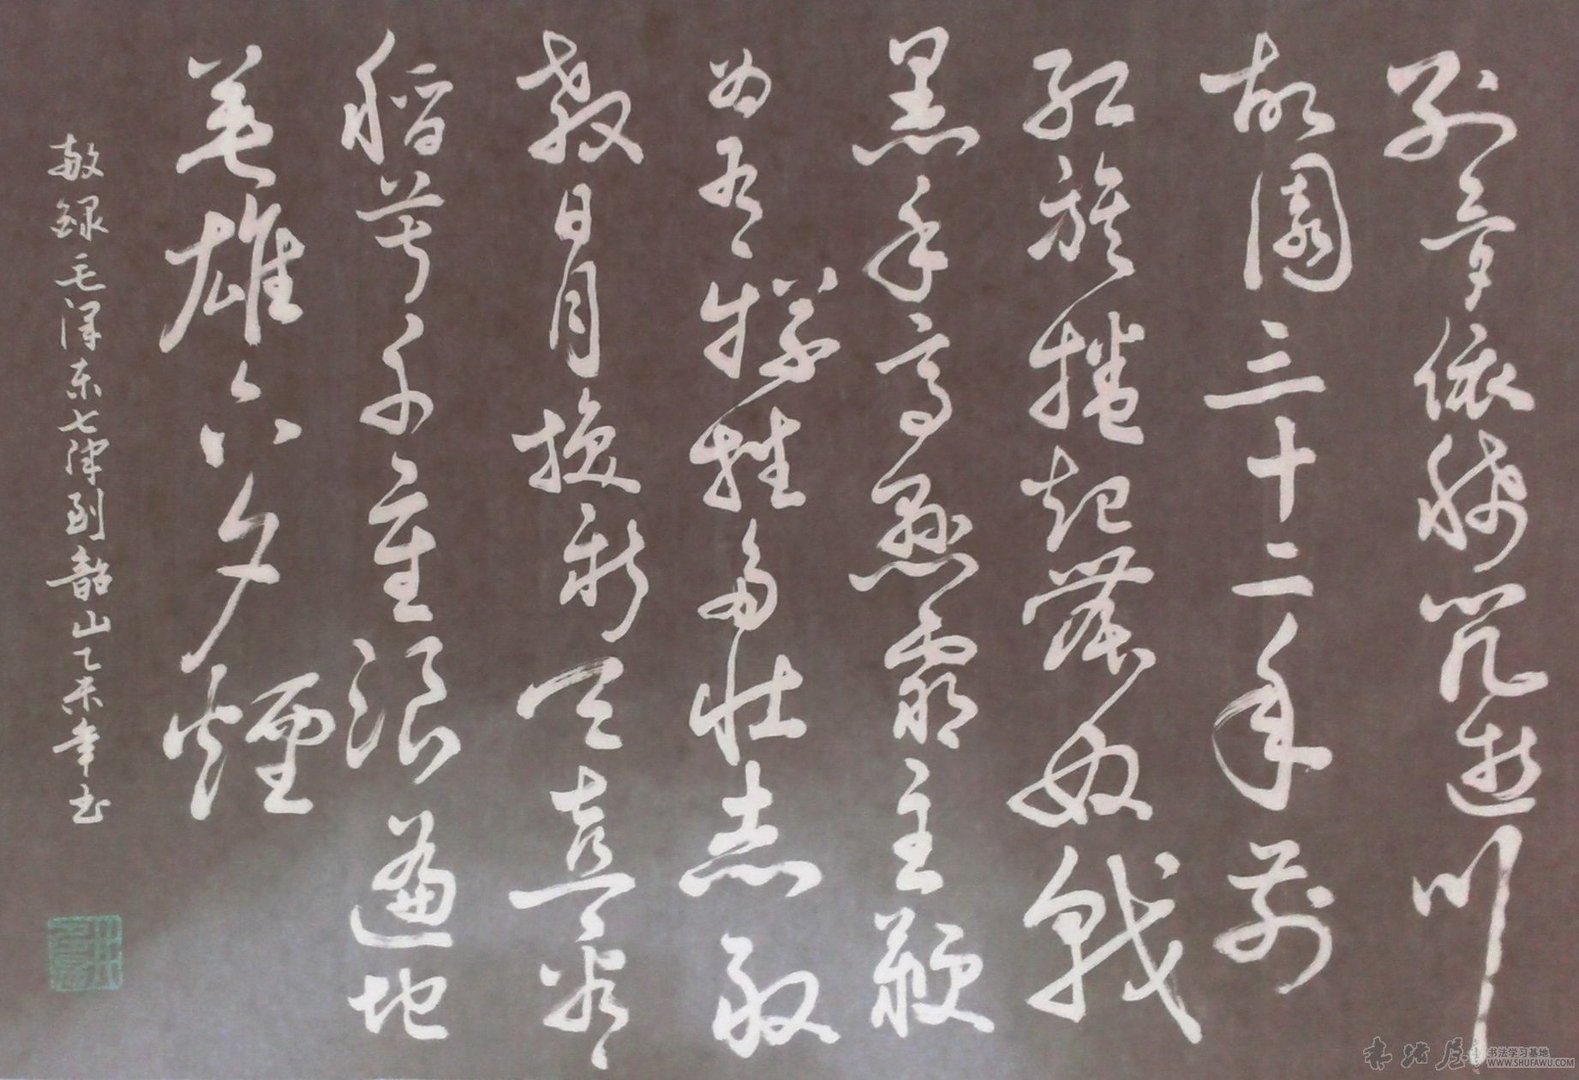 别梦依稀咒逝川
故園三十二年前
红旗捲起農奴戟
黑手高悬霸主鞭
为有牺牲多壮志敢
教日月换新天喜看
稻菽千重浪遍地
英雄下夕煙
敬録毛泽东七律到韶山乙未年书
书法屋
书法学习基地
WWW.SHUFAWU.COM